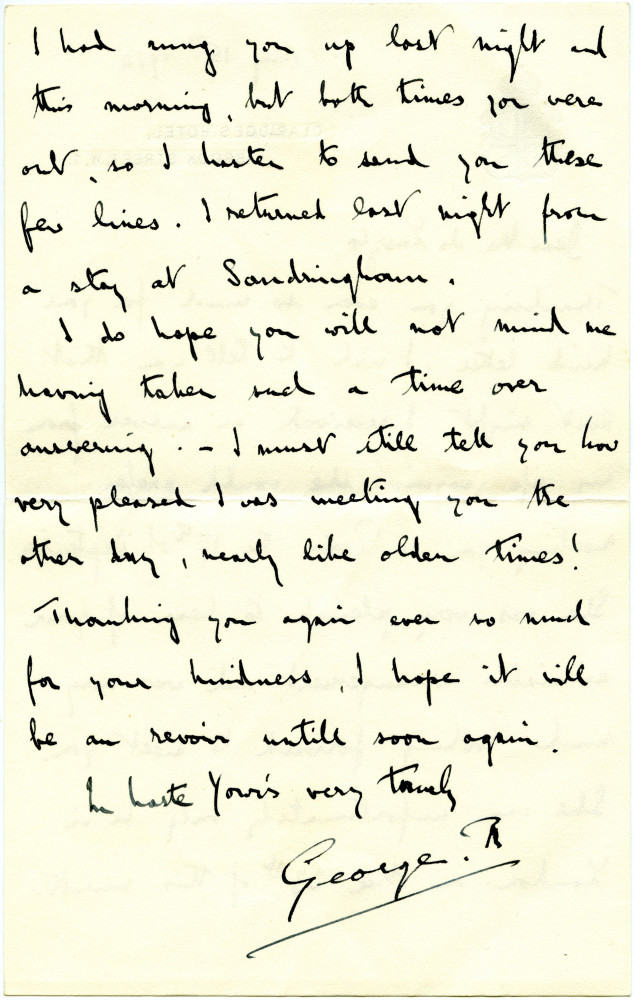 I had rung you up last night and
this morning, but both times you were
out, so I hasten to send you these
few lines. I returned last night from
a stay at Sandringham.
I do hope you will not mind me
having taken such a time over
answering. - I must still tell you how
very pleased I was meeting you the
other day, nearly like olden times!
Thanking you again ever so much
for your kindness, I hope it will
be au revoir untill soon again.
In haste Your's very truely
George. R